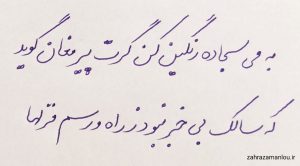 به می سجاده رنگین کن گرت پیر مغان گوید
که سالک بی خبر نبود ز راه و رسم منزلها
zahrazamanlou.ir